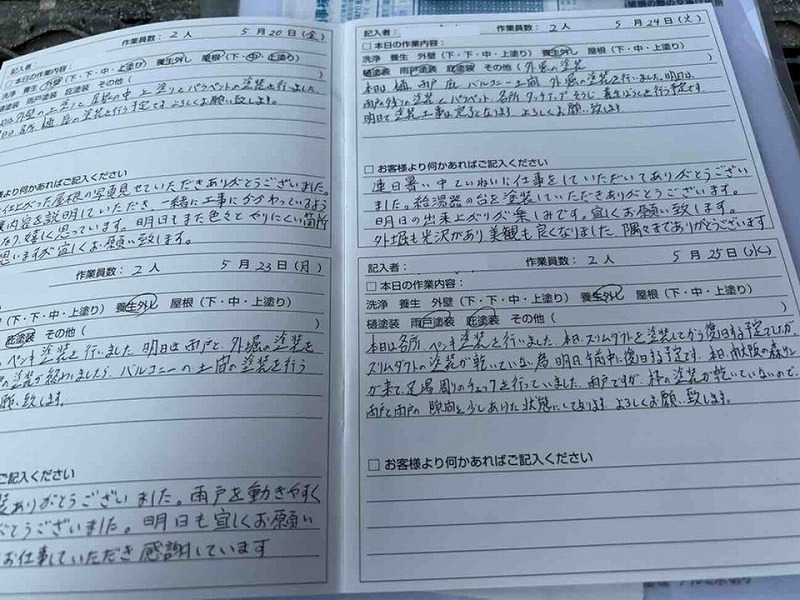 作業員数：2人 5月20日(金)
記入者：
□本日の作業内容：
洗浄 養生 外壁（下・下・中・上塗り） 養生外し 屋根（下・中・上塗り）
樋塗装 雨戸塗装 庇塗装 その他（ ）
は外壁の上塗りと屋根の中上塗りとパラペットの塗装を行いました。
日は各所 樋 庇の塗装を行う予定です。よろしくお願い致します。
客様より何かあればご記入ください
仕上がった屋根の写真見せていただきありがとうございました。
内容を説明していただき、一緒に工事にかかわっているよう
なり嬉しく思っています。明日もまた色々とやりにくい箇所
思いますが宜しくお願い致します。
2人 5月23日(月)
（下・下・中・上塗り） 養生外し 屋根（下・中・上塗り）
庇塗装 その他（
ペンキ塗装を行いました。明日は雨戸と外堀の塗装を
の塗装が終わりましたら、バルコニーの土間の塗装を行う
願い致します。
ご記入ください
装ありがとうございました。雨戸を動きやすく
がとうございました。明日も宜しくお願い
お仕事していただき感謝しています
記入者： 作業員数：2人 5月24日(火)
□本日の作業内容：
洗浄 養生 外壁（下・下・中・上塗り） 養生外し 屋根（下・中・上塗り）
樋塗装 雨戸塗装 庇塗装 その他（外堀の塗装 ）
本日は 樋 雨戸 庇 バルコニー土間 外堀の塗装を行いました。明日は、
雨戸の残りの塗装とパラペット、各所タッチアップそうじ 養生ばらしを行う予定です
明日で塗装工事は完了となります。よろしくお願い致します
□お客様より何かあればご記入ください
連日暑い中ていねいに仕事をしていただいてありがとうござい
ました。給湯器の台を塗装していただきありがとうございます。
明日の出来上がりが楽しみです。宜しくお願い致します。
外堀も光沢があり美観も良くなりました。隅々までありがとうございます
記入者： 作業員数：2人 5月25日(水)
□本日の作業内容：
洗浄 養生 外壁（下・下・中・上塗り） 養生外し 屋根（下・中・上塗り）
樋塗装 雨戸塗装 庇塗装 その他（ ）
本日は各所、ペンキ塗装を行いました。本日、スリムダクトを塗装してから復旧する予定でしたが、
スリムダクトの塗装が乾いていない為 明日午前中に復旧する予定です。本日、大阪の森サン
が来て、足場周りのチェックを行っていました。雨戸ですが、枠の塗装が乾いていないので、
雨戸と雨戸の隙間を少しあけた状態にしております。よろしくお願い致します。
□お客様より何かあればご記入ください